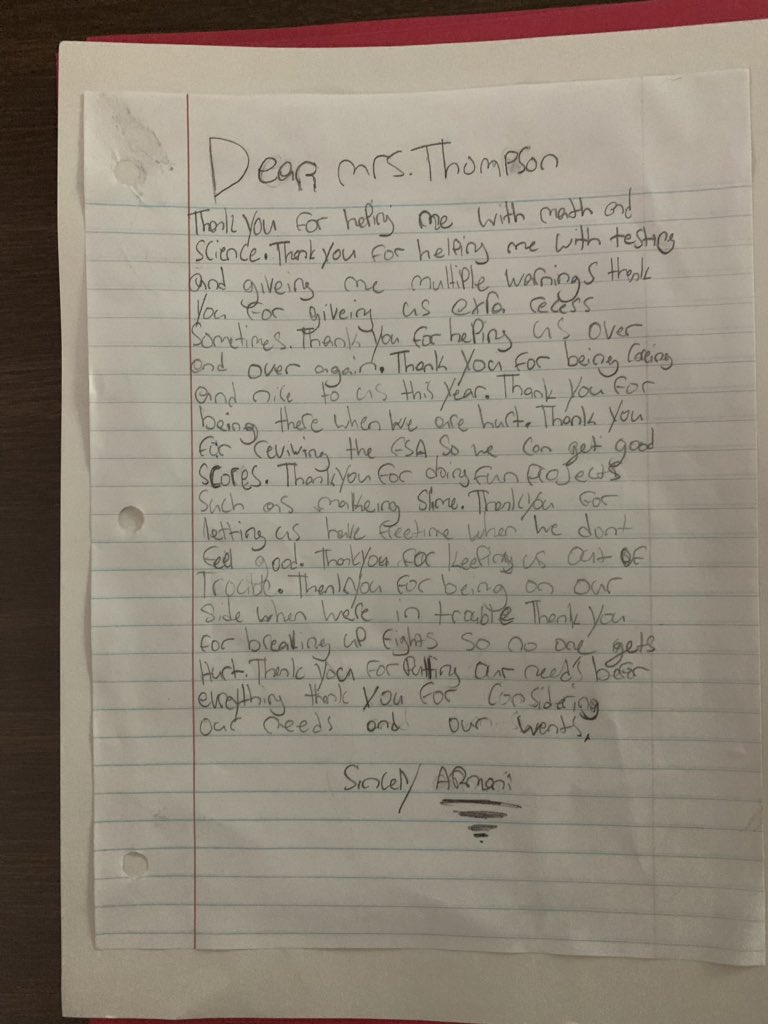 Dear mrs. Thompson
Thank you for helping me with math and
science. Thank you for helping me with testing
and giveing me multiple warnings thank
you for giveing us exra recess
sometimes. Thank you for helping us over
and over again. Thank you for being Careing
and nice to us this year. Thank you for
being there when we are hurt. Thank you
for reviwing the FSA so we can get good
scores. Thankyou for doing fun Projects
such as makeing Slime. Thankyou for
letting us have freetime when we dont
feel good. Thankyou for keeping us out of
Trouble. Thankyou for being on our
side when we're in trouble Thank you
for breaking up fights so no one gets
Hurt. Thank you for Putting our needs befor
everything thank you for Considering
our needs and our wents,
Sincely ARmani